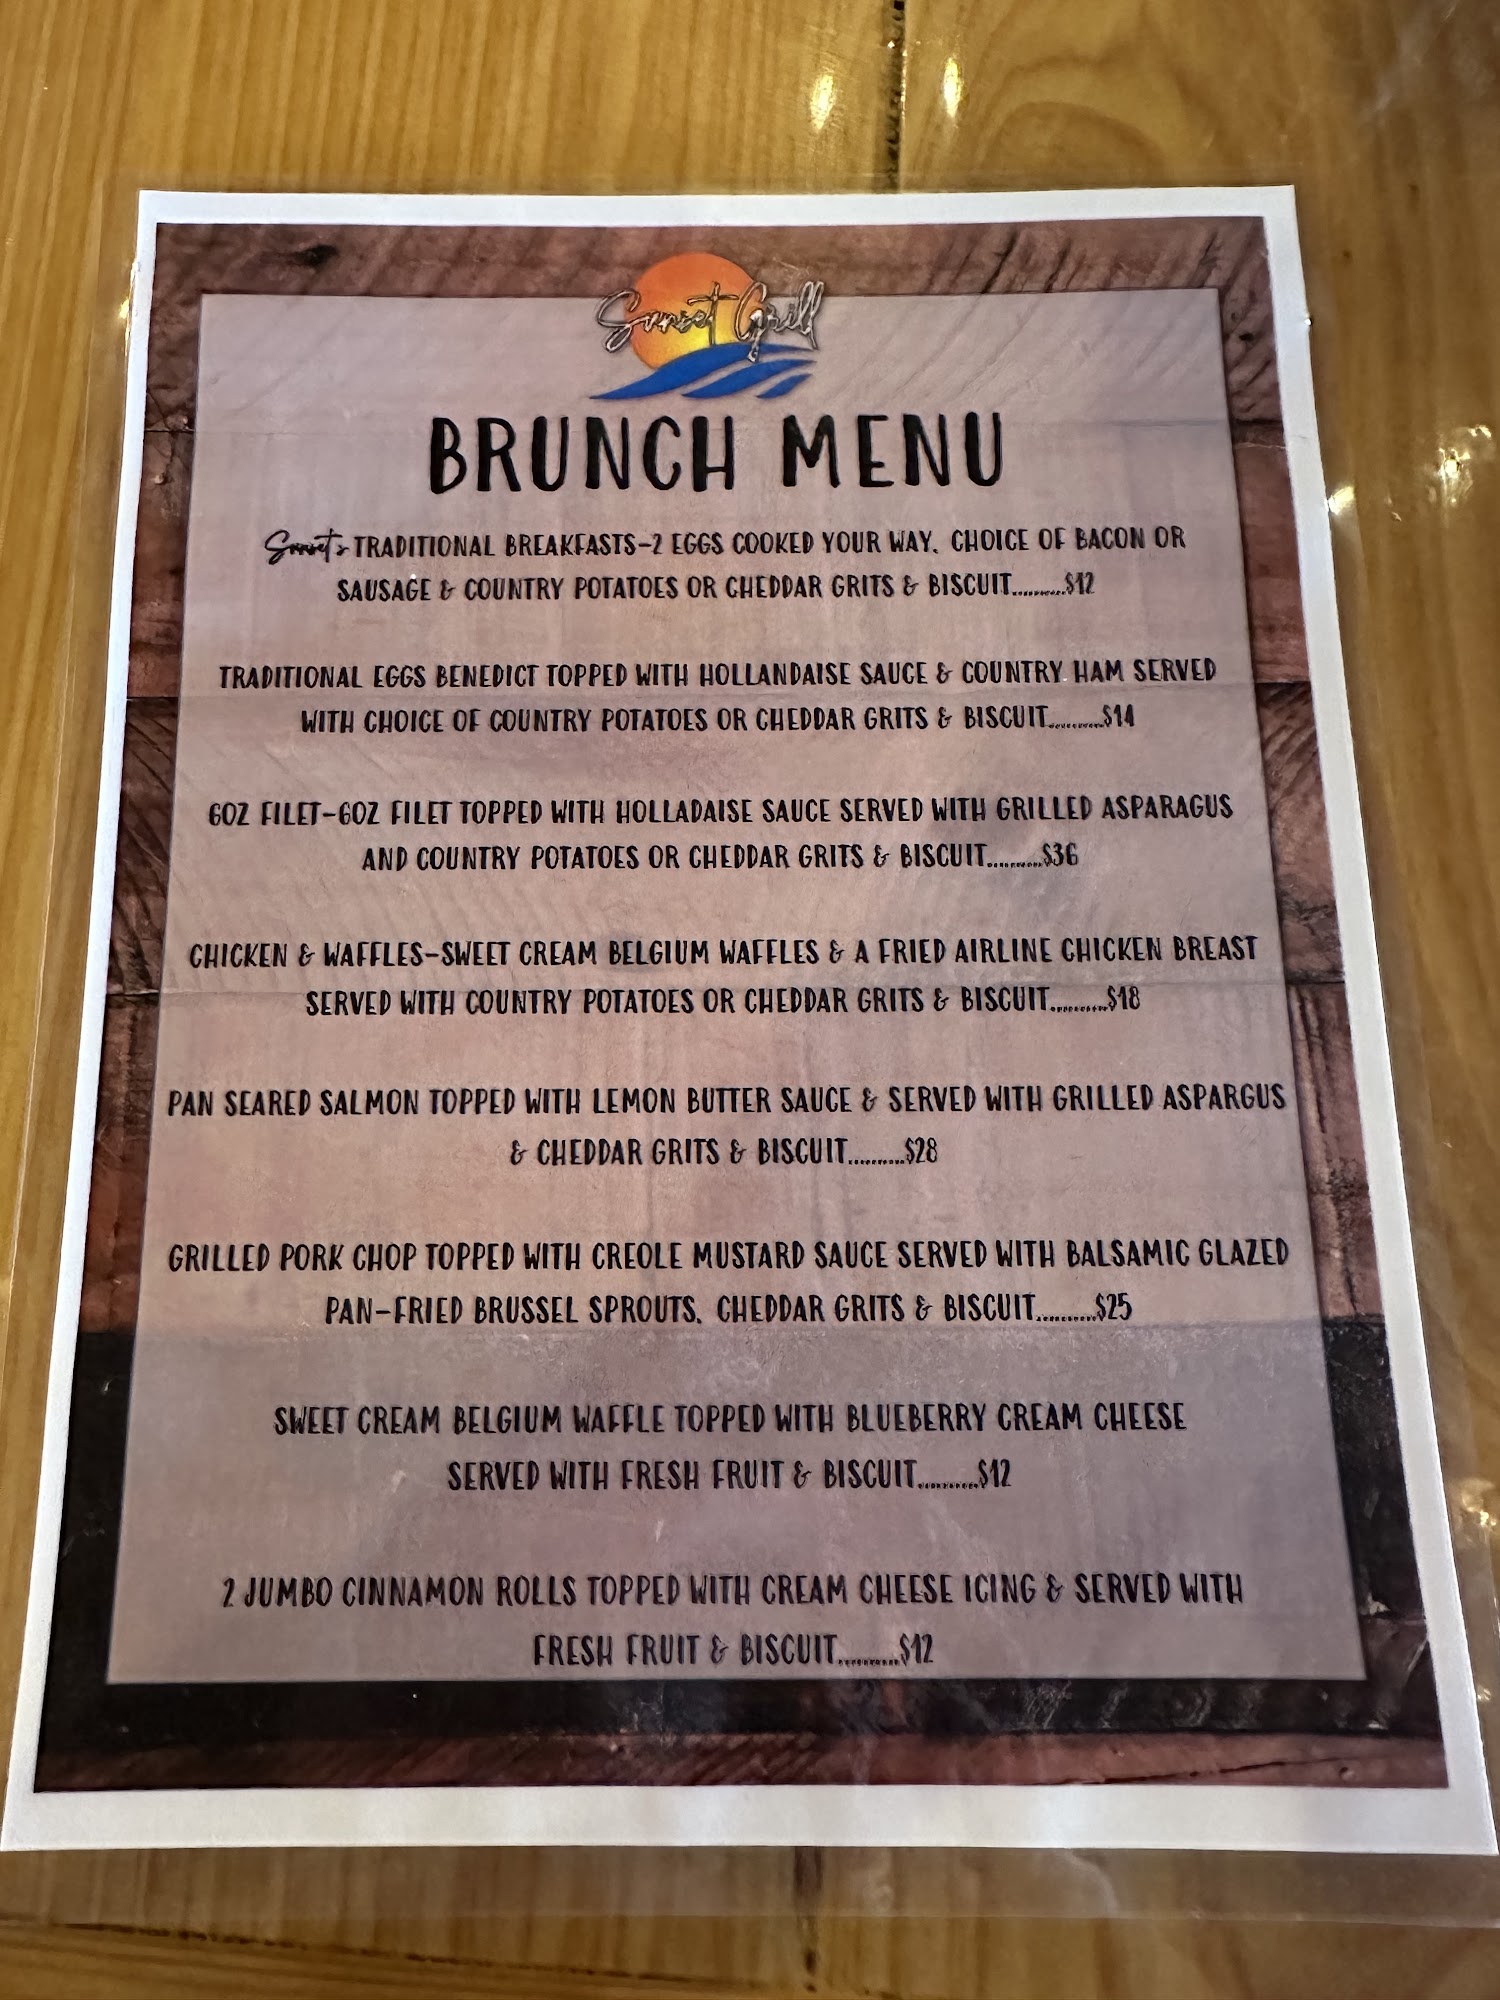 Sunset Grill
BRUNCH MENU
Sunset's TRADITIONAL BREAKFASTS-2 EGGS COOKED YOUR WAY, CHOICE OF BACON OR
SAUSAGE & COUNTRY POTATOES OR CHEDDAR GRITS & BISCUIT..........$12
TRADITIONAL EGGS BENEDICT TOPPED WITH HOLLANDAISE SAUCE & COUNTRY HAM SERVED
WITH CHOICE OF COUNTRY POTATOES OR CHEDDAR GRITS & BISCUIT..........$14
6OZ FILET-6OZ FILET TOPPED WITH HOLLADAISE SAUCE SERVED WITH GRILLED ASPARAGUS
AND COUNTRY POTATOES OR CHEDDAR GRITS & BISCUIT..........$36
CHICKEN & WAFFLES-SWEET CREAM BELGIUM WAFFLES & A FRIED AIRLINE CHICKEN BREAST
SERVED WITH COUNTRY POTATOES OR CHEDDAR GRITS & BISCUIT..........$18
PAN SEARED SALMON TOPPED WITH LEMON BUTTER SAUCE & SERVED WITH GRILLED ASPARGUS
& CHEDDAR GRITS & BISCUIT..........$28
GRILLED PORK CHOP TOPPED WITH CREOLE MUSTARD SAUCE SERVED WITH BALSAMIC GLAZED
PAN-FRIED BRUSSEL SPROUTS, CHEDDAR GRITS & BISCUIT..........$25
SWEET CREAM BELGIUM WAFFLE TOPPED WITH BLUEBERRY CREAM CHEESE
SERVED WITH FRESH FRUIT & BISCUIT..........$12
2 JUMBO CINNAMON ROLLS TOPPED WITH CREAM CHEESE ICING & SERVED WITH
FRESH FRUIT & BISCUIT..........$12